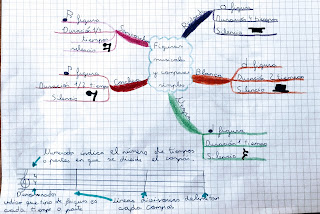 Figuras
musicales
y compases
simples
figura
Duración 4 tiempos
Silencio
Blanca
figura
Duración 2 tiempos
Silencio
figura
Duración 1 tiempo
Silencio
figura
Duración 1/2 tiempo
Silencio
figura
Duración 1/4
tiempo
silencio
Numerador indica el número de tiempos
o partes en que se divide el compás
Denominador
indica que tipo de figura es
cada tiempo o parte
líneas divisorias delimitan
cada compás